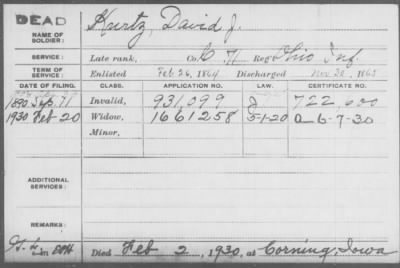 DEAD
NAME OF SOLDIER: Kurtz, David J.
SERVICE: Late rank, Co. C 71 Reg't Ohio Inf.
TERM OF SERVICE: Enlisted Feb 26, 1864 Discharged Nov 30, 1865
DATE OF FILING. CLASS. APPLICATION NO. LAW. CERTIFICATE NO.
1890 Sep. Invalid, 931,099 J 722,600
1930 Feb-20 Widow, 1661258 5-1-20 a-6-7-30
Minor,
ADDITIONAL SERVICES:
REMARKS:
Died Feb 2, 1930, at Corning, Iowa